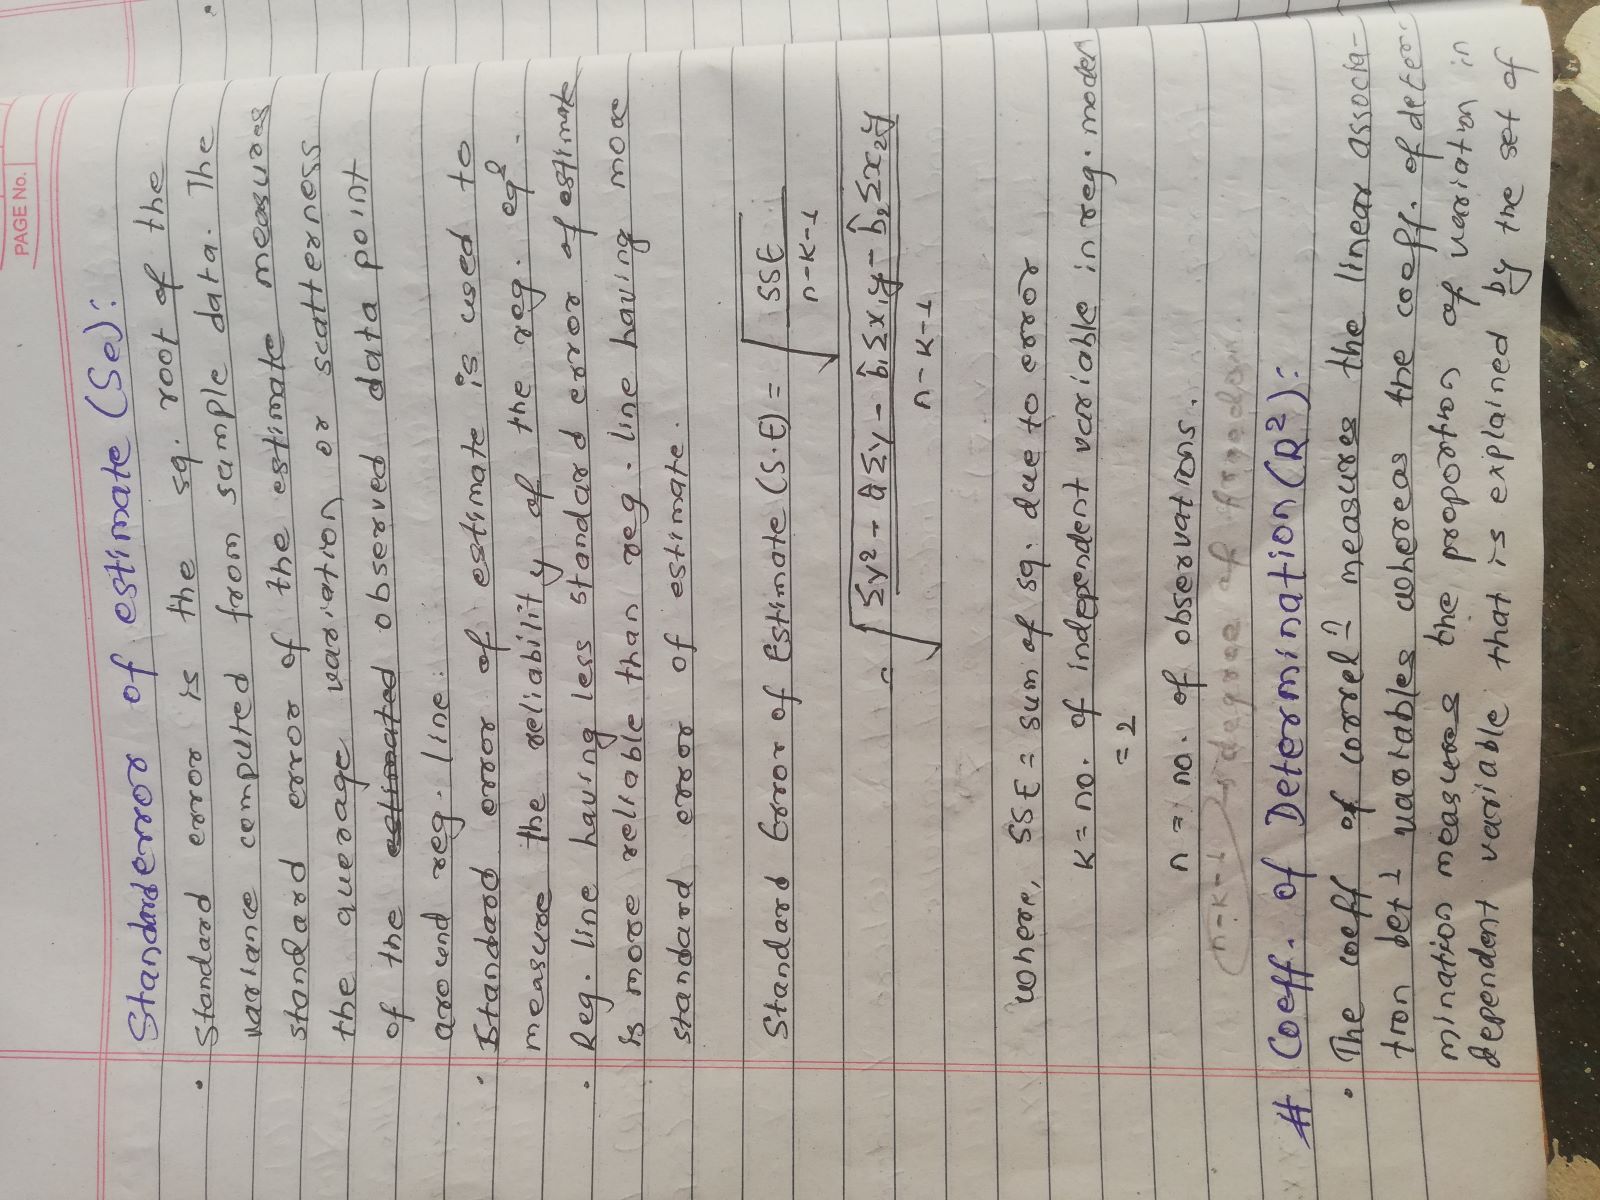 PAGE No.
Standard error of estimate (Se):
• Standard error is the sq. root of the
variance computed from sample data. The
standard error of the estimate measures
the average variation or scatterness
of the estimated observed data point
around reg. line.
• Standard error of estimate is used to
measure the reliability of the reg. eqⁿ.
• Reg. line having less standard error of estimate
is more reliable than reg. line having more
standard error of estimate.
Standard Error of Estimate (S.E) = √(SSE / n-k-1)
= √(Σy² - â Σy - b̂₁ Σx₁y - b̂₂ Σx₂y / n-k-1)
where, SSE = sum of sq. due to error
k = no. of independent variable in reg. model
= 2
n = no. of observations.
n-k-1 → degree of freedom.
# Coeff. of Determination (R²):
• The coeff of correlⁿ measures the linear associa-
tion betⁿ variables whereas the coeff. of deter-
mination measures the proportion of variation in
dependent variable that is explained by the set of